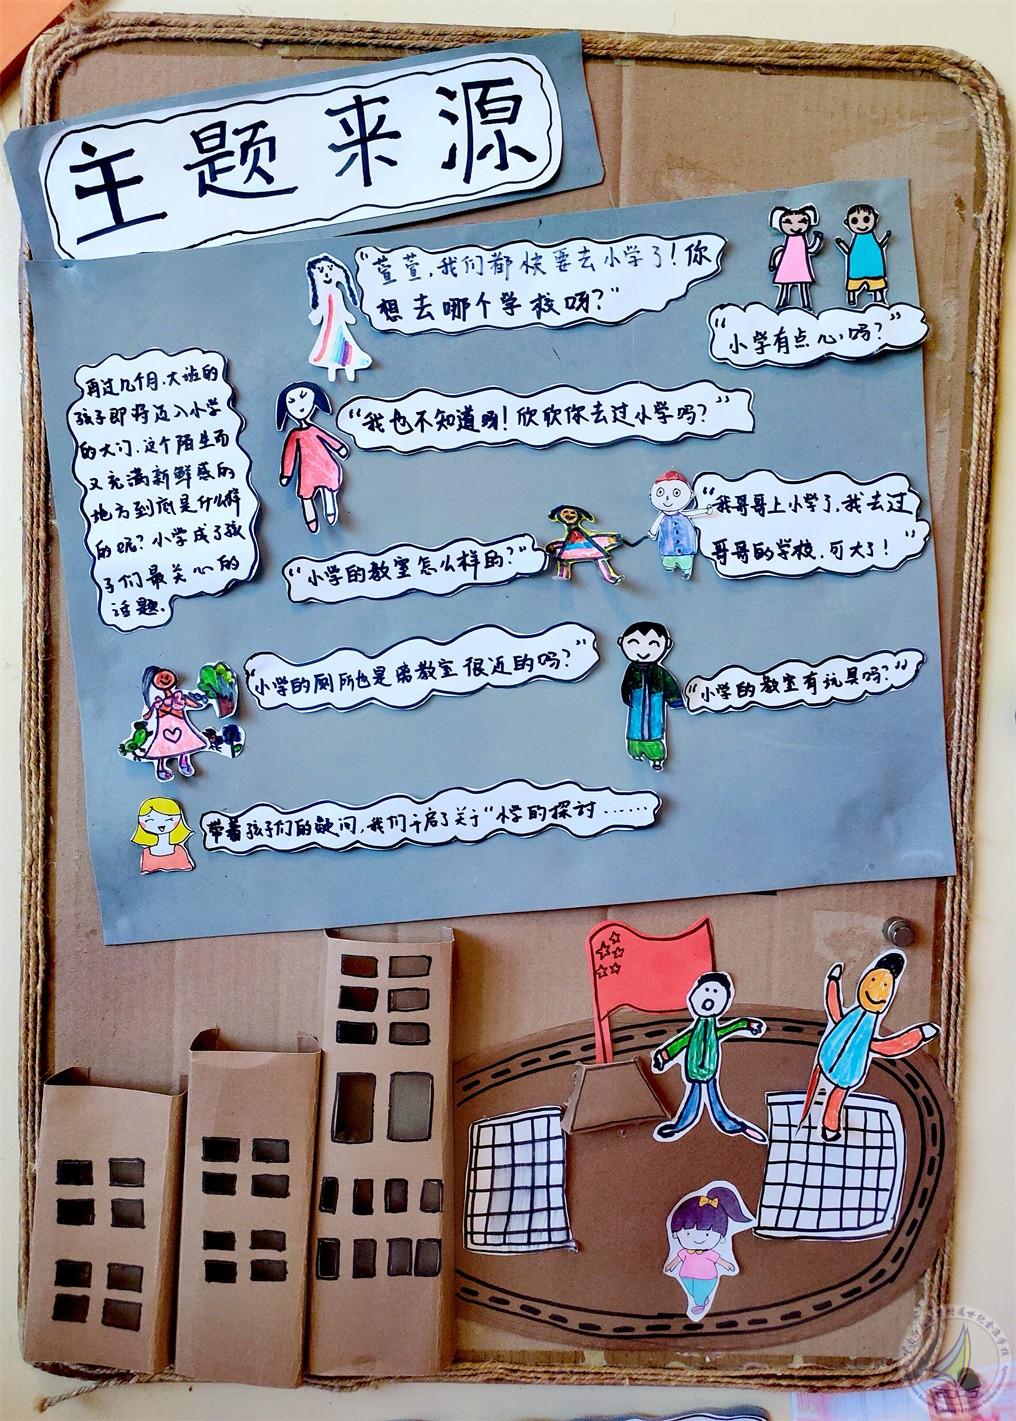 主题来源
"萱萱,我们都快要去小学了!你
想去哪个学校呀?"
"小学有点心吗?"
再过几个月,大班的
孩子即将迈入小学
的大门,这个陌生而
又充满新鲜感的
地方到底是什么样
的呢?小学成了孩
子们最关心的
话题.
"我也不知道呀!欣欣你去过小学吗?"
"我哥哥上小学了,我去过
哥哥的学校,可大了!"
"小学的教室怎么样的?"
"小学的厕所也是离教室很近的吗?"
"小学的教室有玩具吗?"
带着孩子们的疑问,我们开启了关于"小学的探讨......